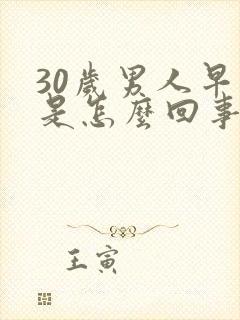 30歲男人早
是怎麼回事
王寅